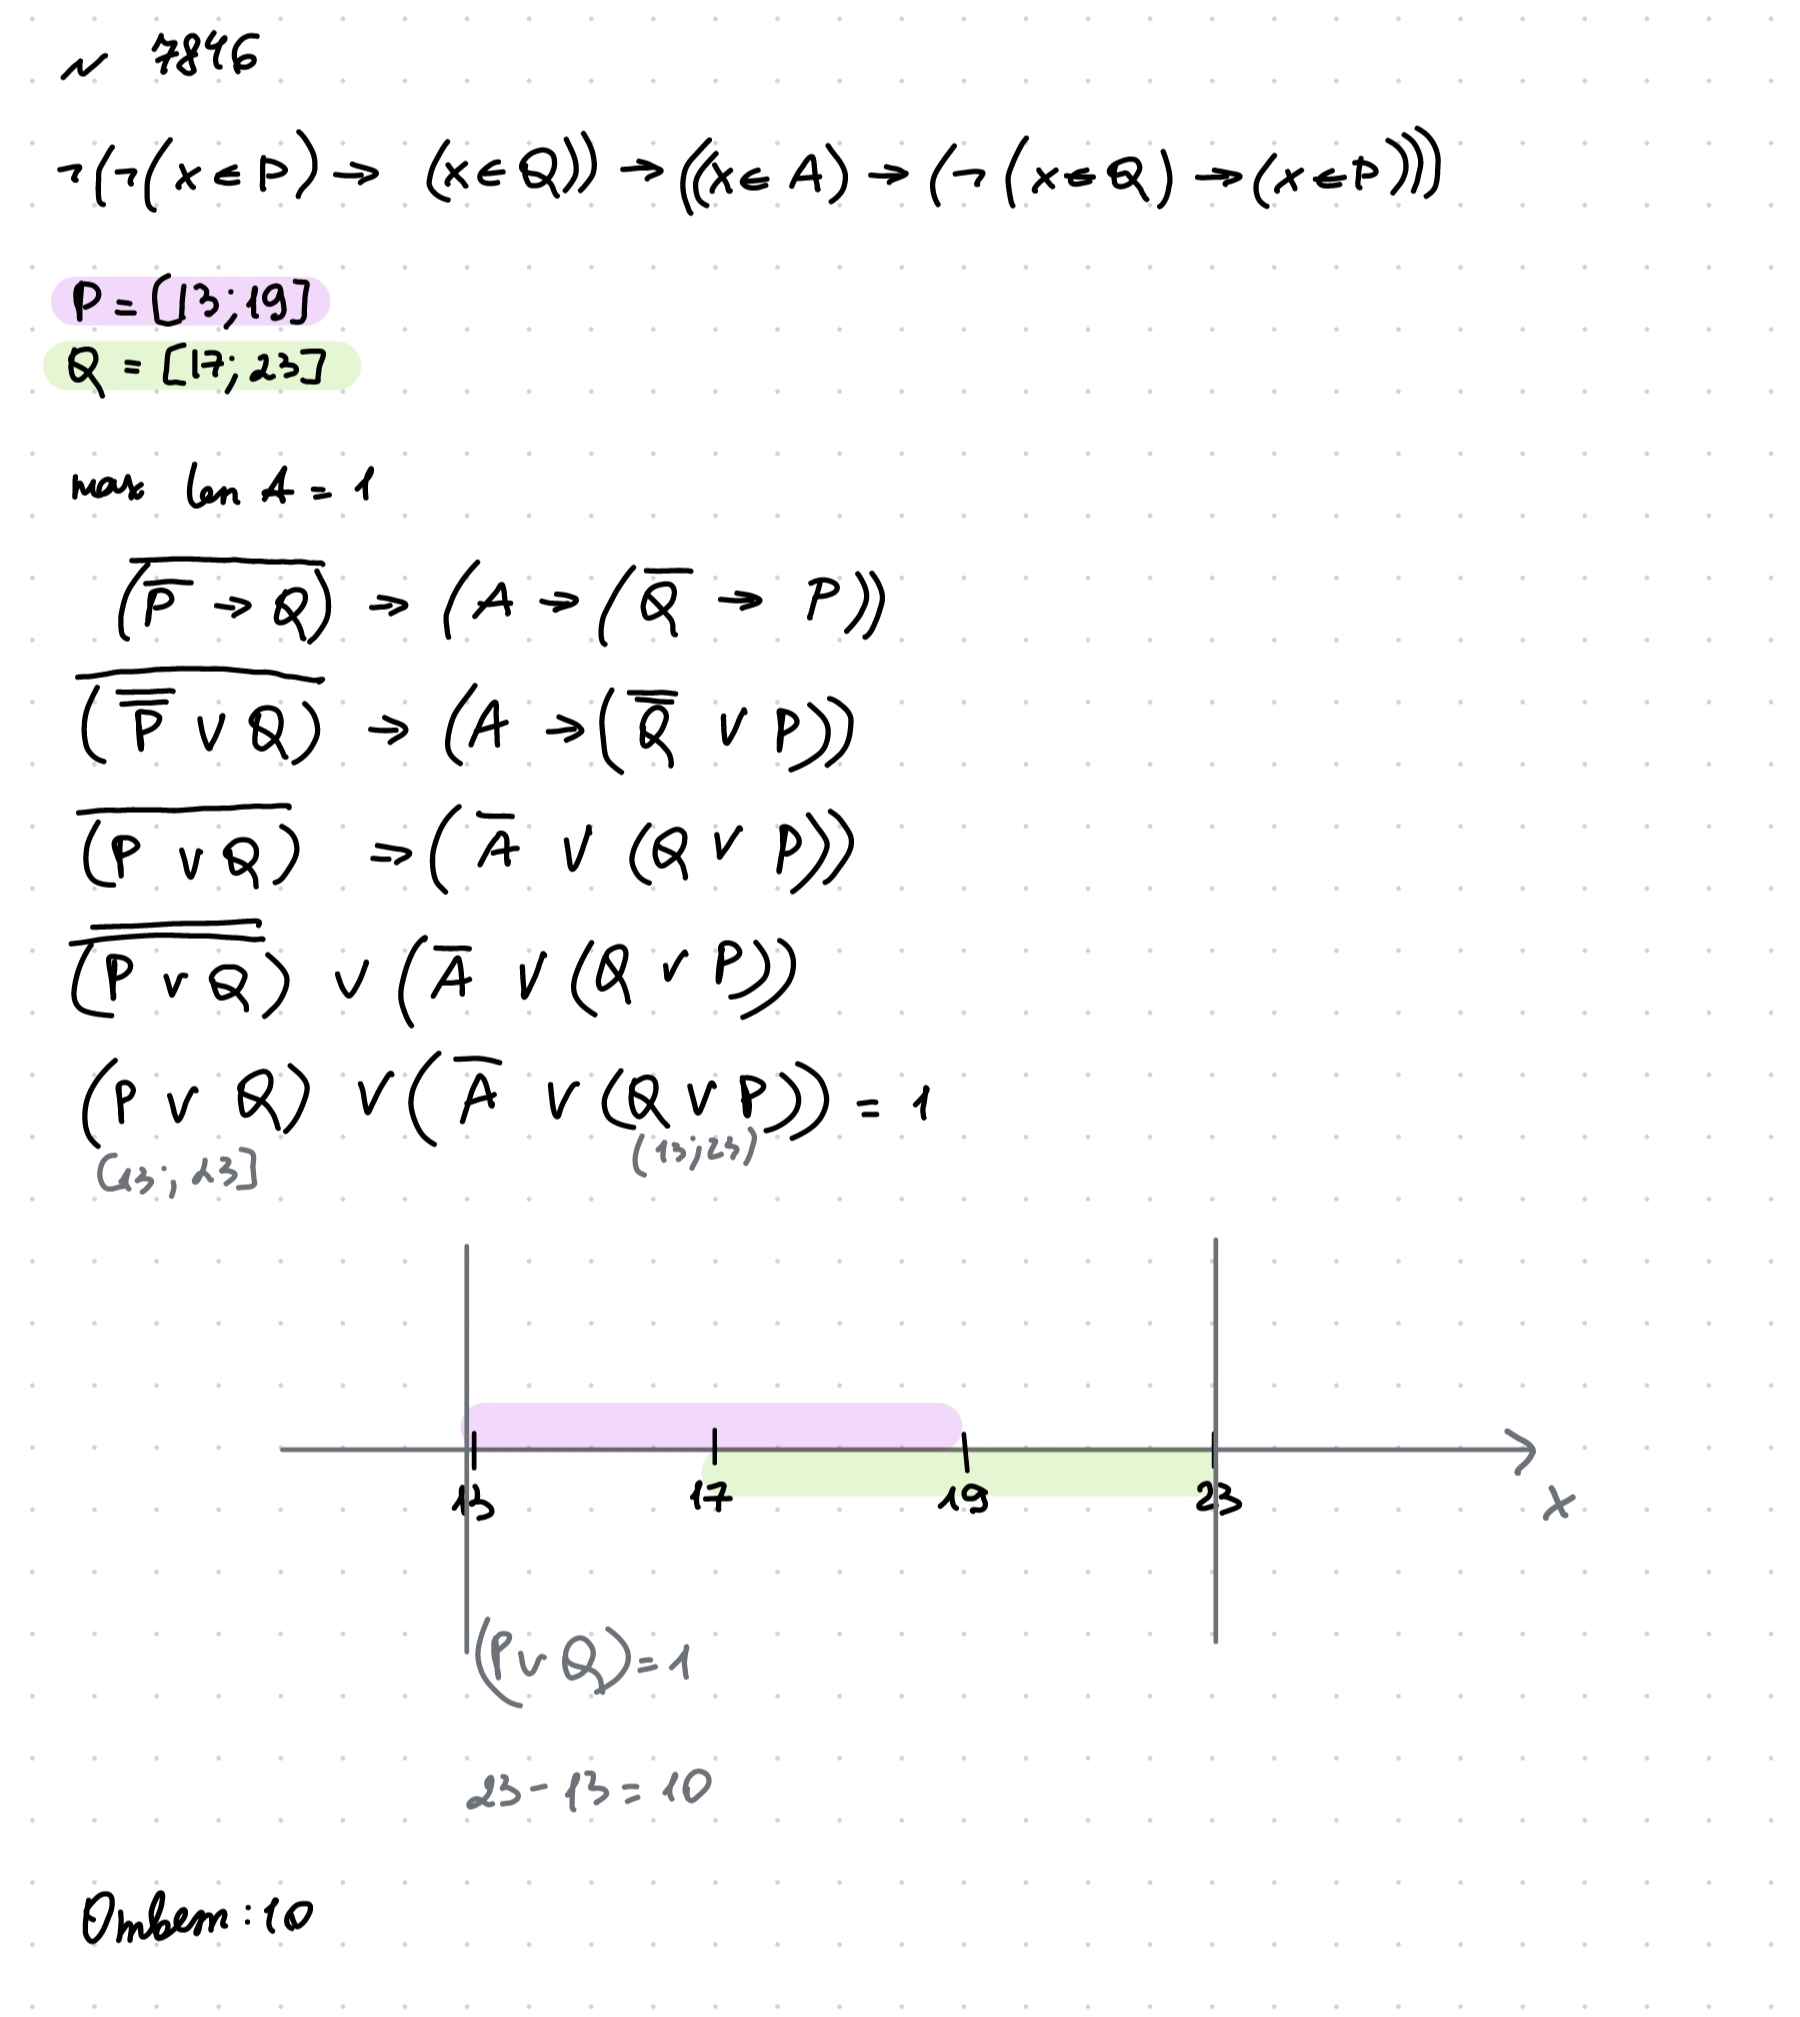 ~ 7846
¬(¬(x ∈ P) → (x ∈ Q)) → ((x ∈ A) → (¬(x ∈ Q) → (x ∈ P)))
P = [13; 19]
Q = [17; 23]
max len A = 1
(P̅ → Q)̅ → (A → (Q̅ → P))
(P̿ ∨ Q)̅ → (A → (Q̿ ∨ P))
(P ∨ Q)̅ → (A̅ ∨ (Q ∨ P))
(P ∨ Q)̿ ∨ (A̅ ∨ (Q ∨ P))
(P ∨ Q) ∨ (A̅ ∨ (Q ∨ P)) = 1
[13; 23] (13; 23)
13 17 19 23 x
(P ∨ Q) = 1
23 - 13 = 10
Ответ: 10